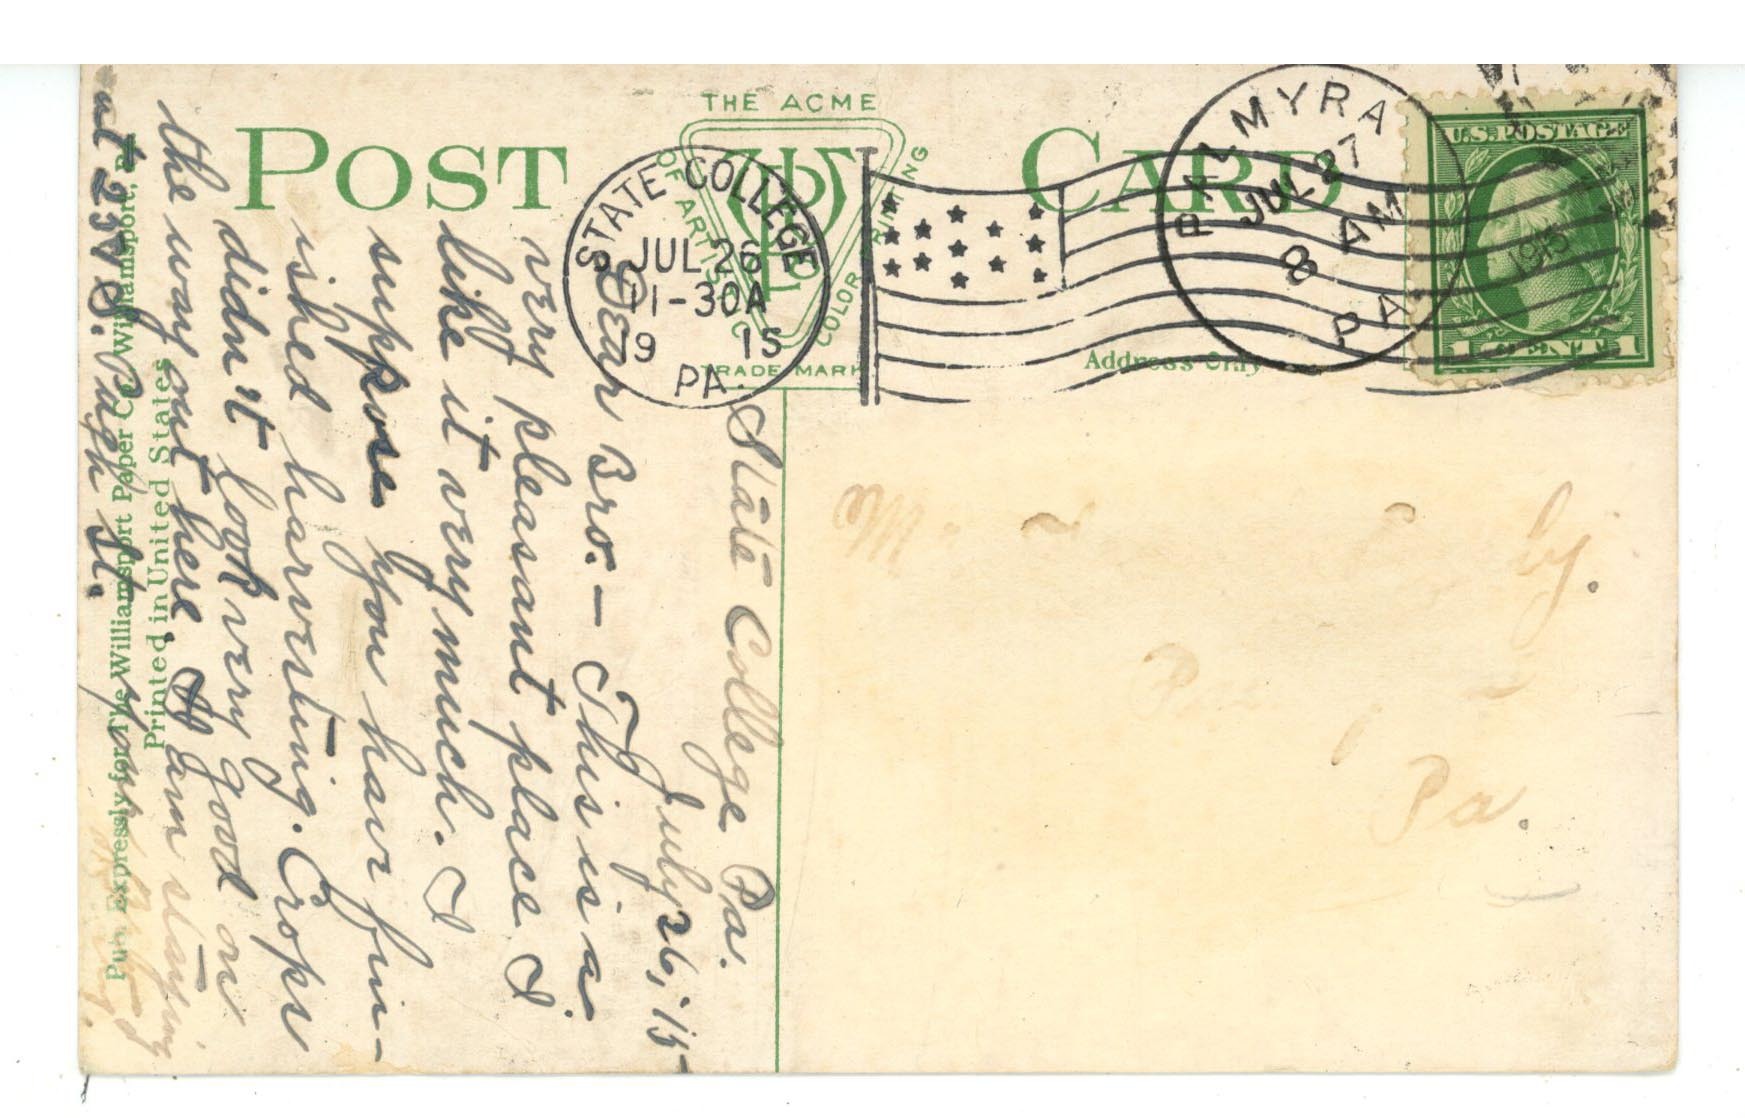 THE ACME
POST CARD
OF ARTISTIC
COLOR PRINTING
TRADE MARK
STATE COLLEGE
JUL 26
11-30A
1915
PA.
PALMYRA
JUL 27
8 AM
1915
PA.
U.S. POSTAGE
1 CENT 1
Address Only
State College Pa.
July 26, '15
Dear Bro. — This is a
very pleasant place I
like it very much. I
suppose you have fin-
ished harvesting. Crops
didn't look very good on
the way out here. I am staying
at 237 S. Pugh St.
Pub. Expressly for The Williamsport Paper Co., Williamsport, Pa.
Printed in United States
Pa.